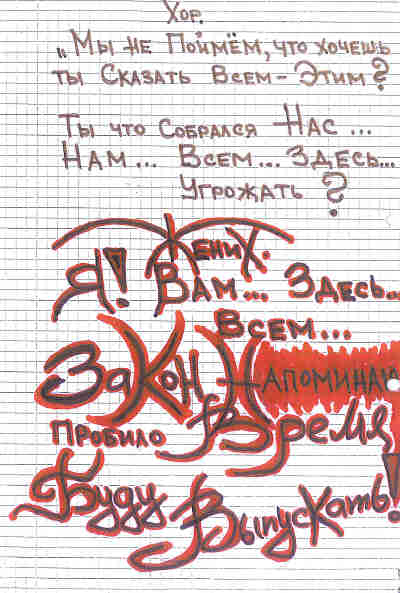 Хор.
„Мы не Поймём, что хочешь
ты Сказать Всем – Этим?
Ты что Собрался Нас...
Нам... Всем... Здесь...
Угрожать?
Жених.
Я! Вам... Здесь...
Всем...
Закон Напоминаю
Пробило Время
Буду Выпускать!